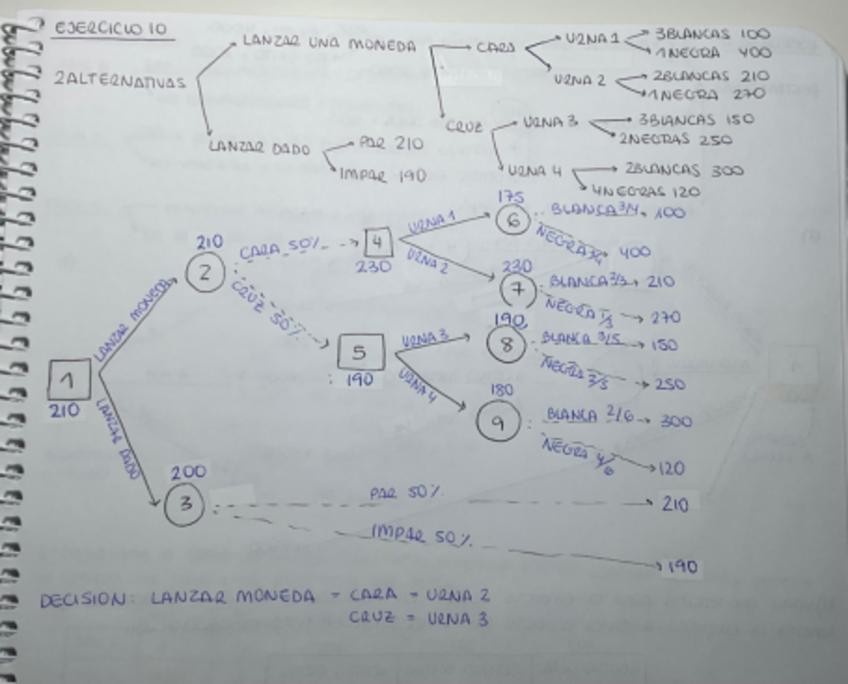 EJERCICIO 10
2 ALTERNATIVAS
LANZAR UNA MONEDA
CARA
URNA 1
3 BLANCAS 100
1 NEGRA 400
URNA 2
2 BLANCAS 210
1 NEGRA 270
CRUZ
URNA 3
3 BLANCAS 150
2 NEGRAS 250
URNA 4
2 BLANCAS 300
4 NEGRAS 120
LANZAR DADO
PAR 210
IMPAR 190
1
210
LANZAR MONEDA
LANZAR DADO
210
2
CARA 50%
CRUZ 50%
4
230
URNA 1
URNA 2
175
6
BLANCA 3/4 100
NEGRA 400
230
7
BLANCA 2/3 210
NEGRA 1/3 270
5
190
URNA 3
URNA 4
190
8
BLANCA 3/5 150
NEGRA 250
180
9
BLANCA 2/6 300
NEGRA 4/6 120
200
3
PAR 50% 210
IMPAR 50% 190
DECISION: LANZAR MONEDA = CARA = URNA 2
CRUZ = URNA 3